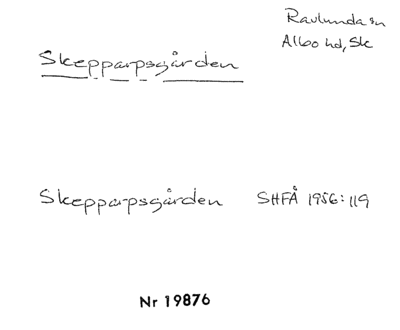 Ravlunda sn
Albo hd, Sk
Skepparpsgården
Skepparpsgården SHFÅ 1956:119
Nr 19876